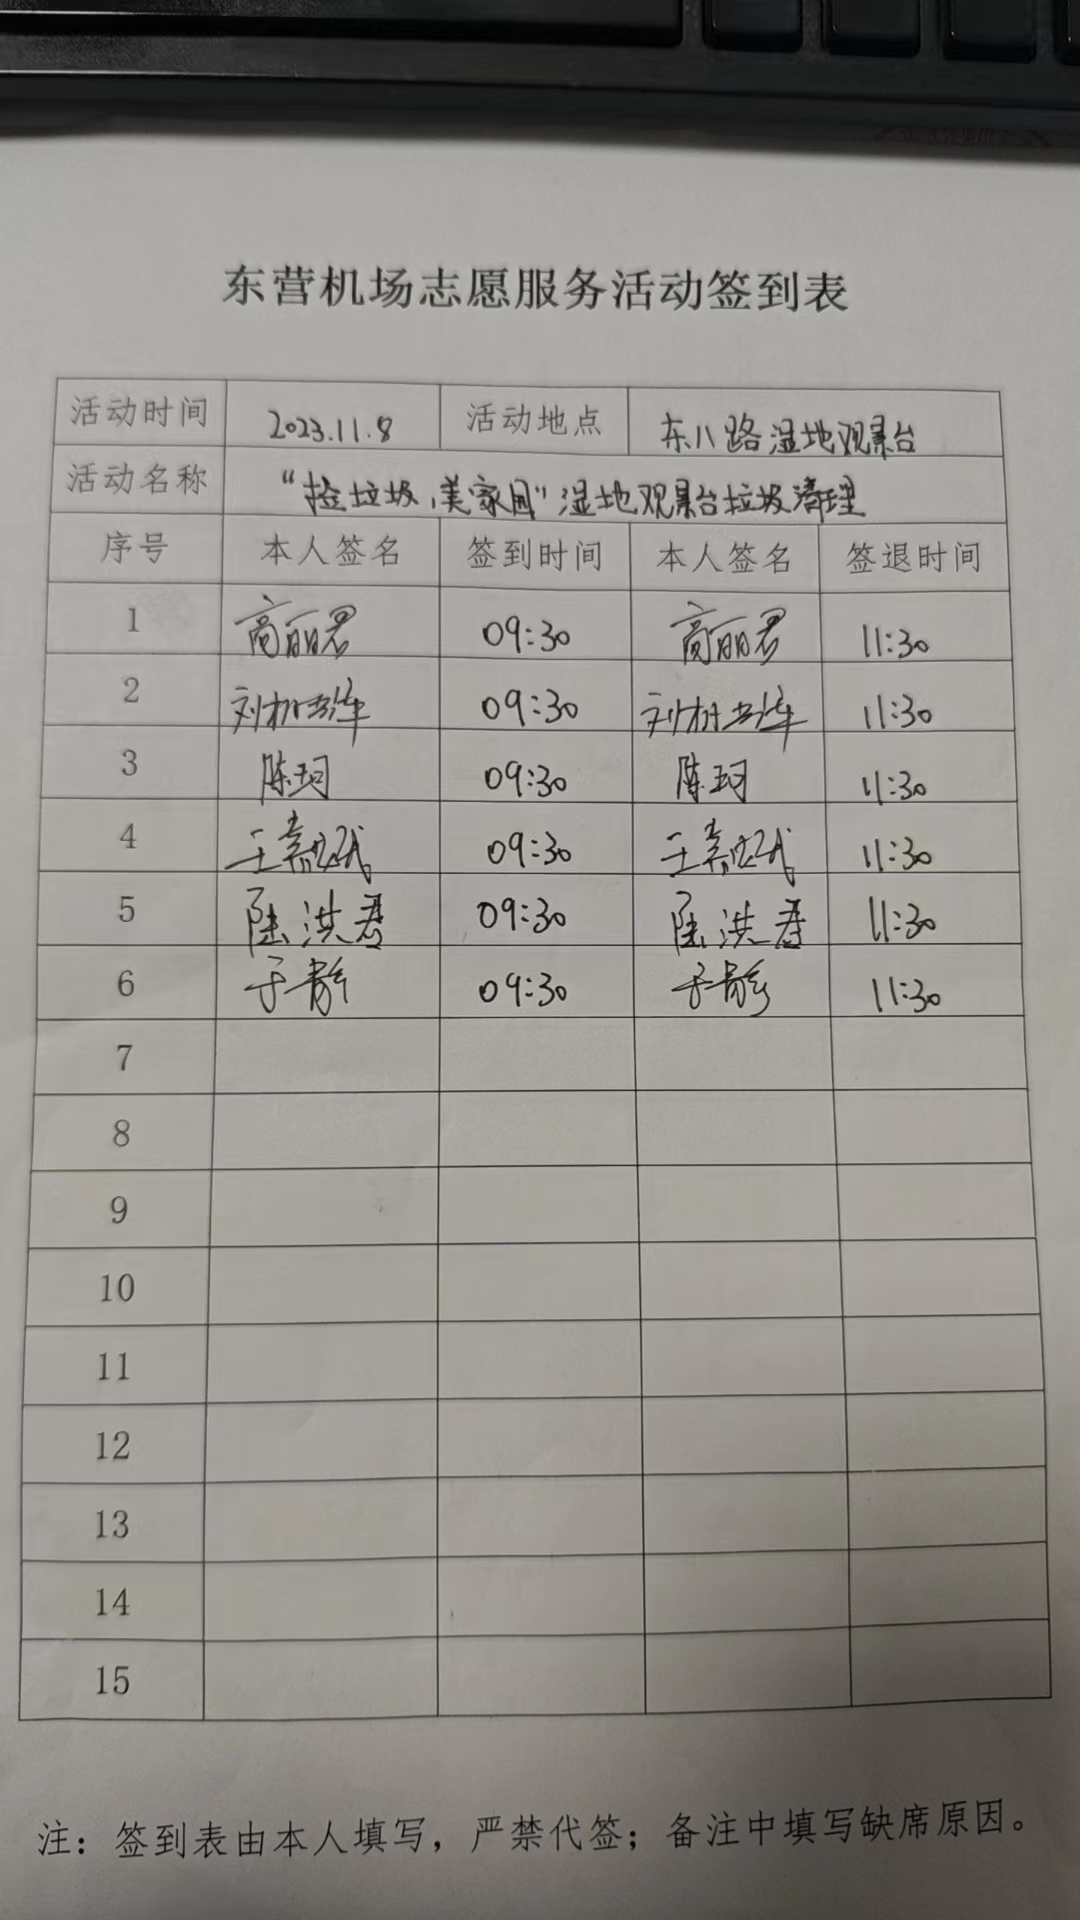 东营机场志愿服务活动签到表
活动时间 2023.11.8 活动地点 东八路湿地观景台
活动名称 “捡垃圾,美家园”湿地观景台垃圾清理
序号 本人签名 签到时间 本人签名 签退时间
1 高丽君 09:30 高丽君 11:30
2 刘 09:30 刘 11:30
3 陈珂 09:30 陈珂 11:30
4 王 09:30 王 11:30
5 陆洪君 09:30 陆洪君 11:30
6 于静 09:30 于静 11:30
7
8
9
10
11
12
13
14
15
注：签到表由本人填写，严禁代签；备注中填写缺席原因。